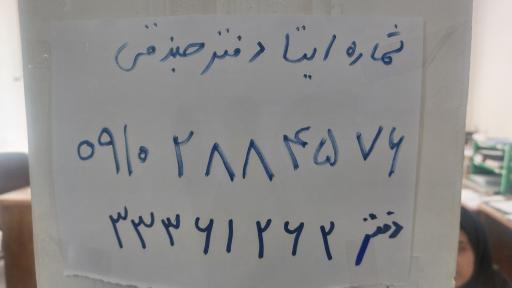 شماره ایتا دفتر صندوقی
۰۹۱۰ ۲۸۸ ۴۵ ۷۶
دفتر ۳۳۳۶۱۲۶۲